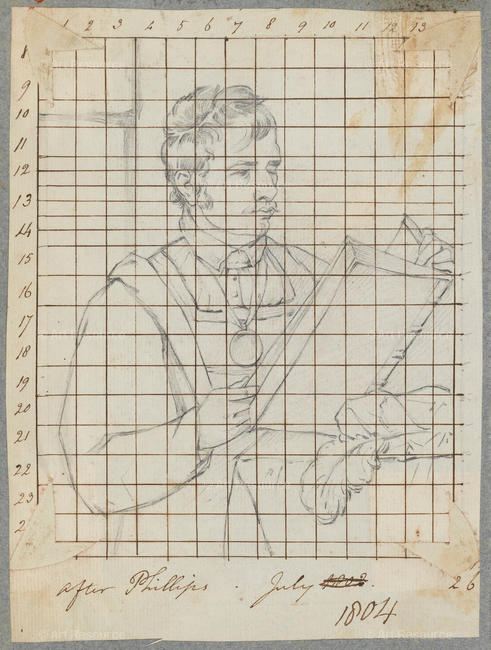 1 2 3 4 5 6 7 8 9 10 11 12 13
8
9
10
11
12
13
14
15
16
17
18
19
20
21
22
23
2
after Phillips . July 1803.
1804
26
© Art Resource
© Art Resource